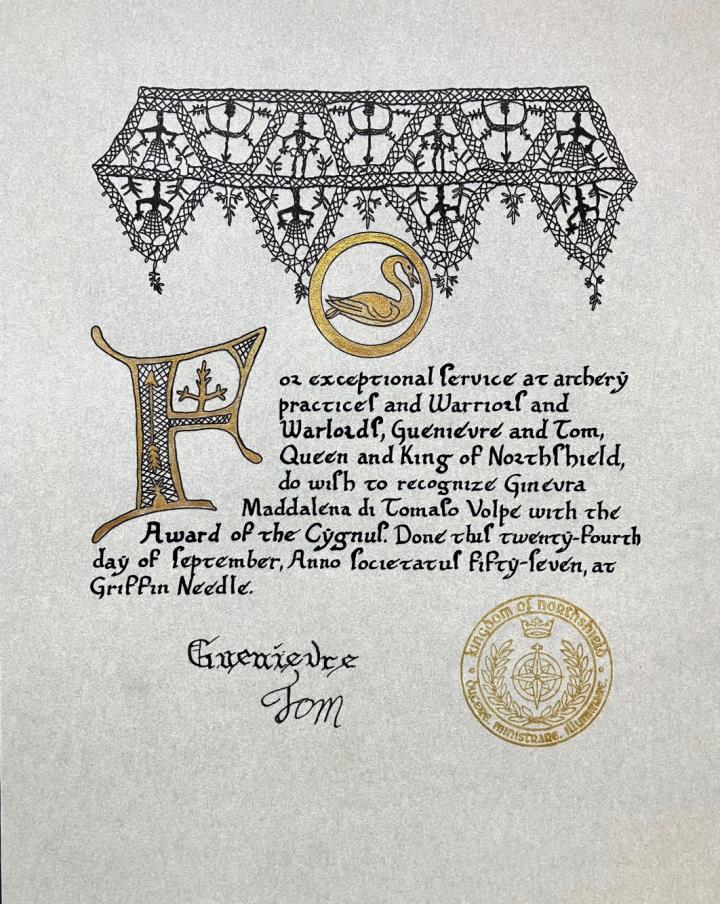 For exceptional service at archery
practices and Warriors and
Warlords, Guenievre and Tom,
Queen and King of Northshield,
do wish to recognize Ginevra
Maddalena di Tomaso Volpe with the
Award of the Cygnus. Done this twenty-fourth
day of September, Anno Societatus fifty-seven, at
Griffin Needle.
Guenievre
Tom
Kingdom of Northshield
Ducere, Ministrare, Illuminare.